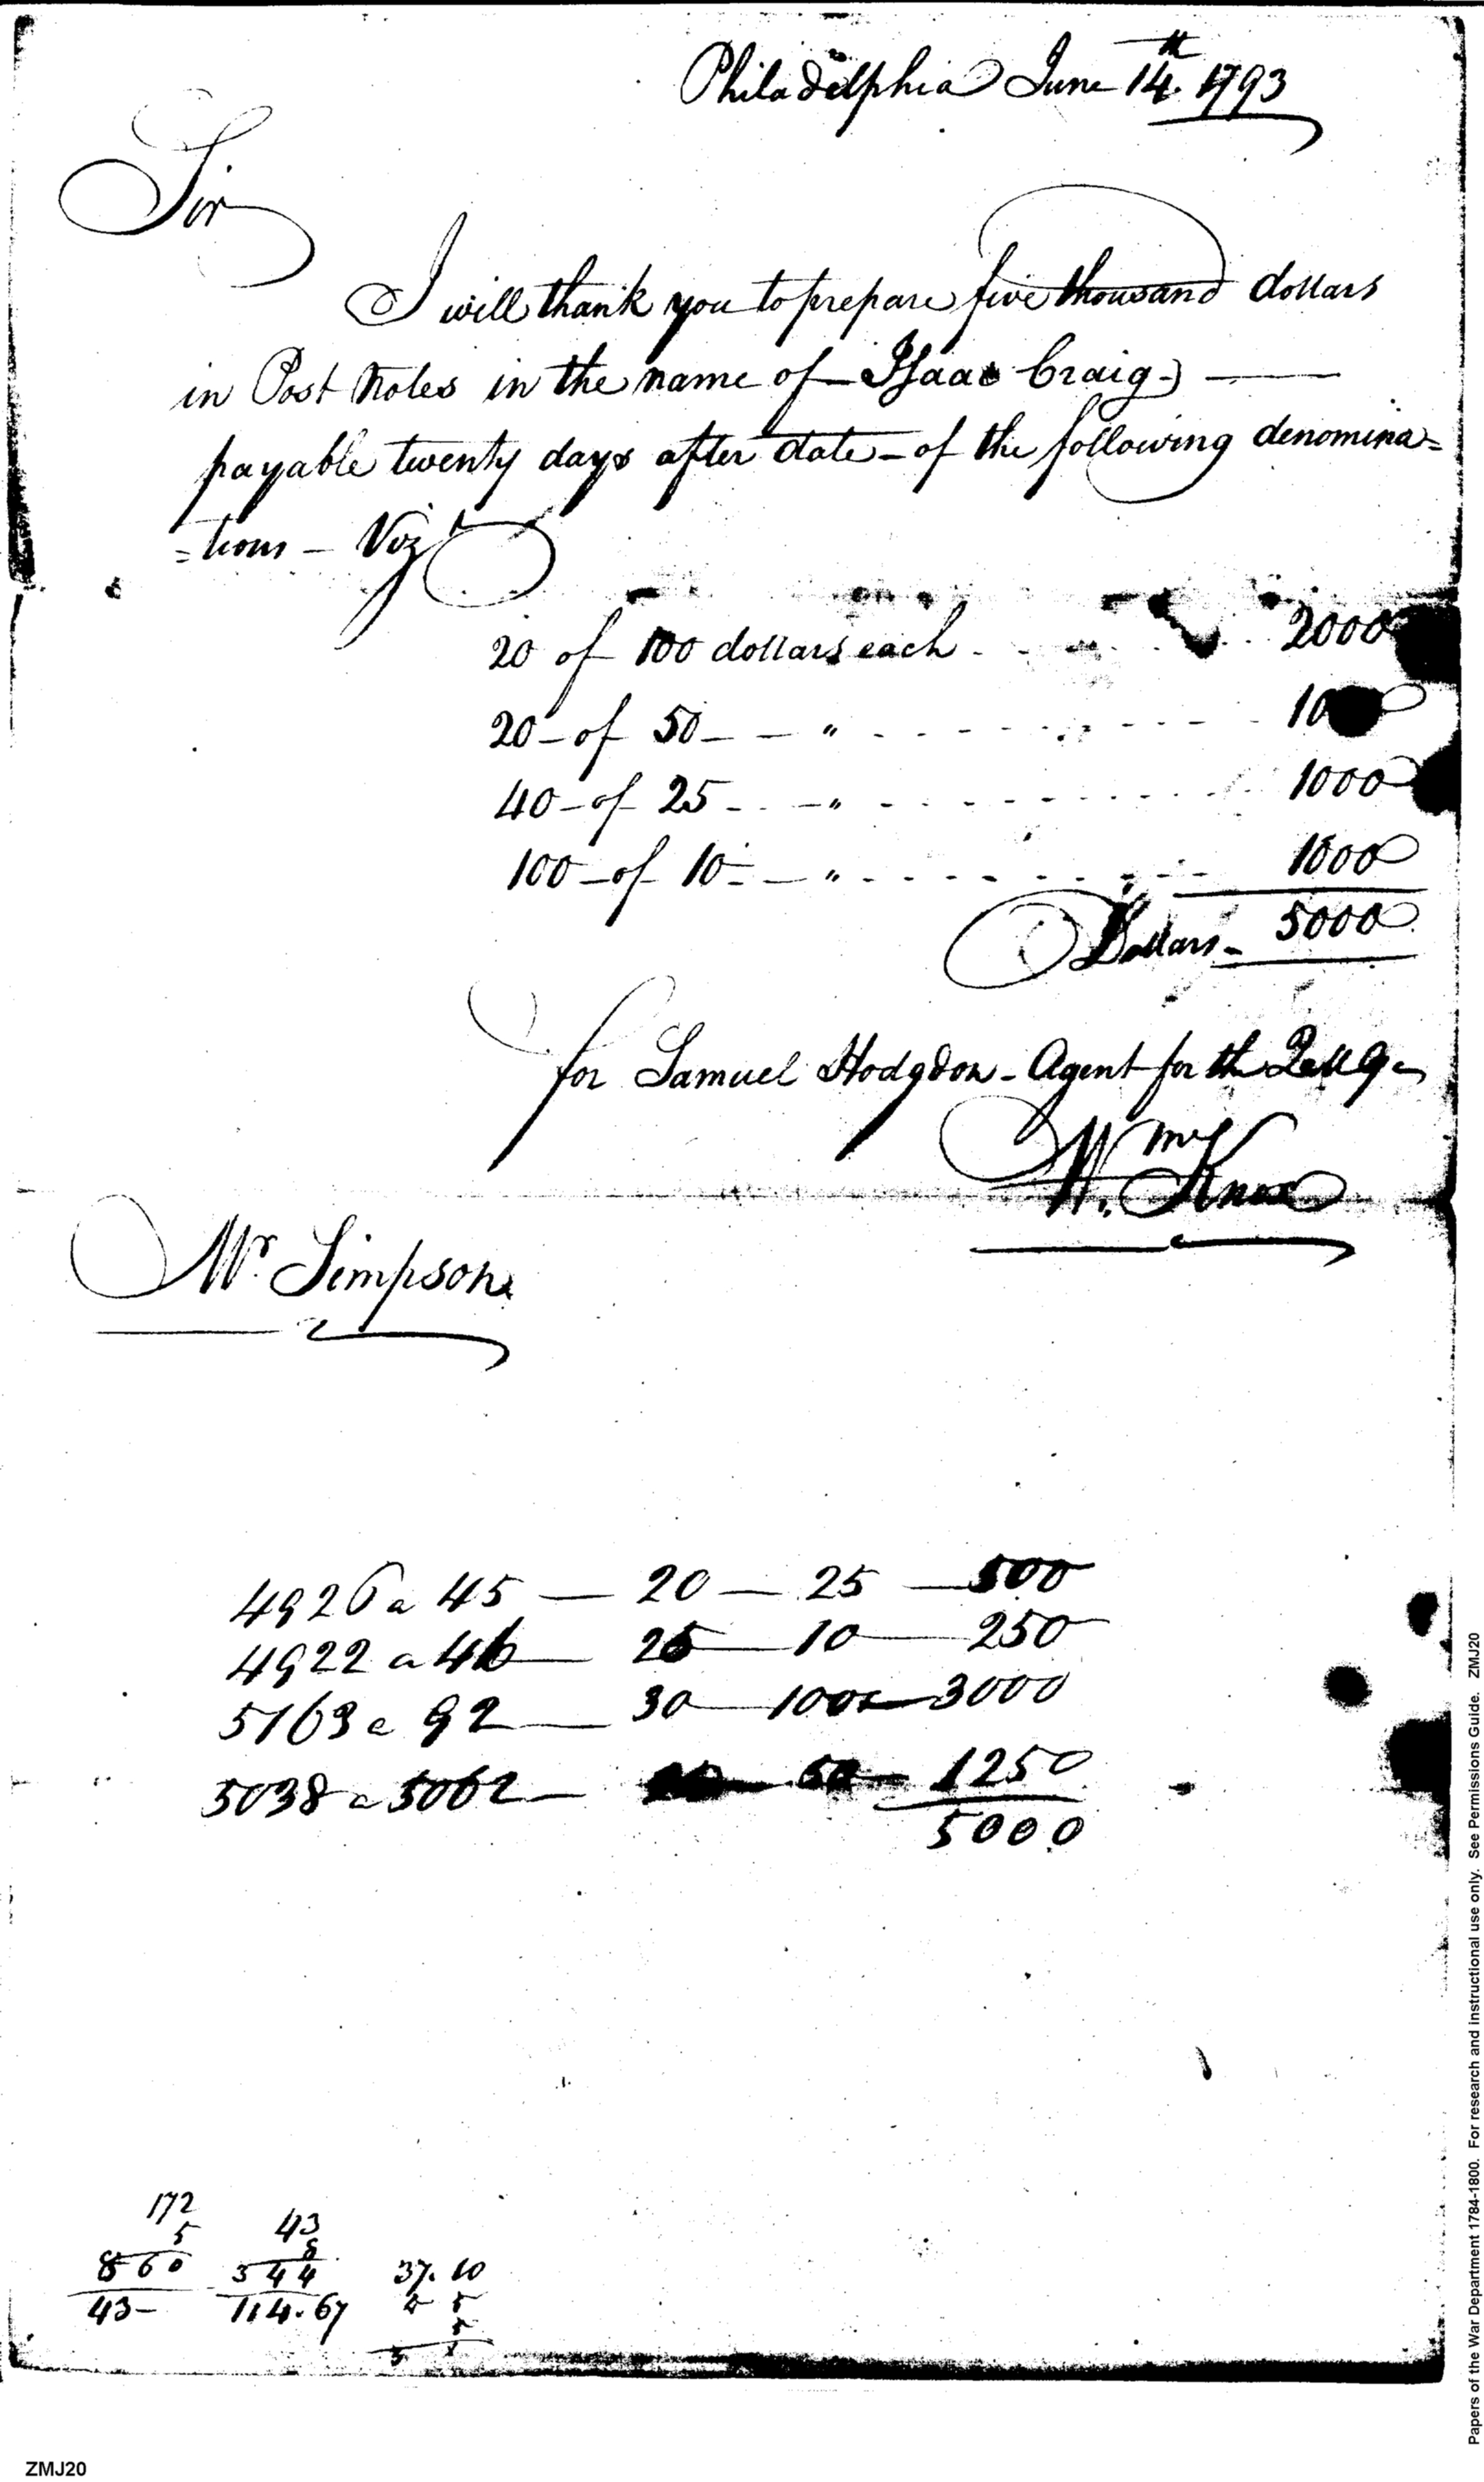 Philadelphia June 14th. 1793
Sir
I will thank you to prepare five thousand dollars
in Post Notes in the name of Isaac Craig
payable twenty days after date - of the following denomina=
=tions - Vizt
20 of 100 dollars each 2000
20 - of 50 - - " 10
40 - of 25 - - " 1000
100 - of 10 - - " 1000
Dollars - 5000
for Samuel Hodgdon - Agent for the
Wm Knox
Mr. Simpson
4926 a 45 — 20 — 25 — 500
4922 a 46 — 25 — 10 — 250
5163 a 92 — 30 — 100 — 3000
5038 a 5062 — 50 — 1250
5000
172
5
860
43 -
43
8
344
114.67
37.10
Papers of the War Department 1784-1800. For research and instructional use only. See Permissions Guide. ZMJ20
ZMJ20